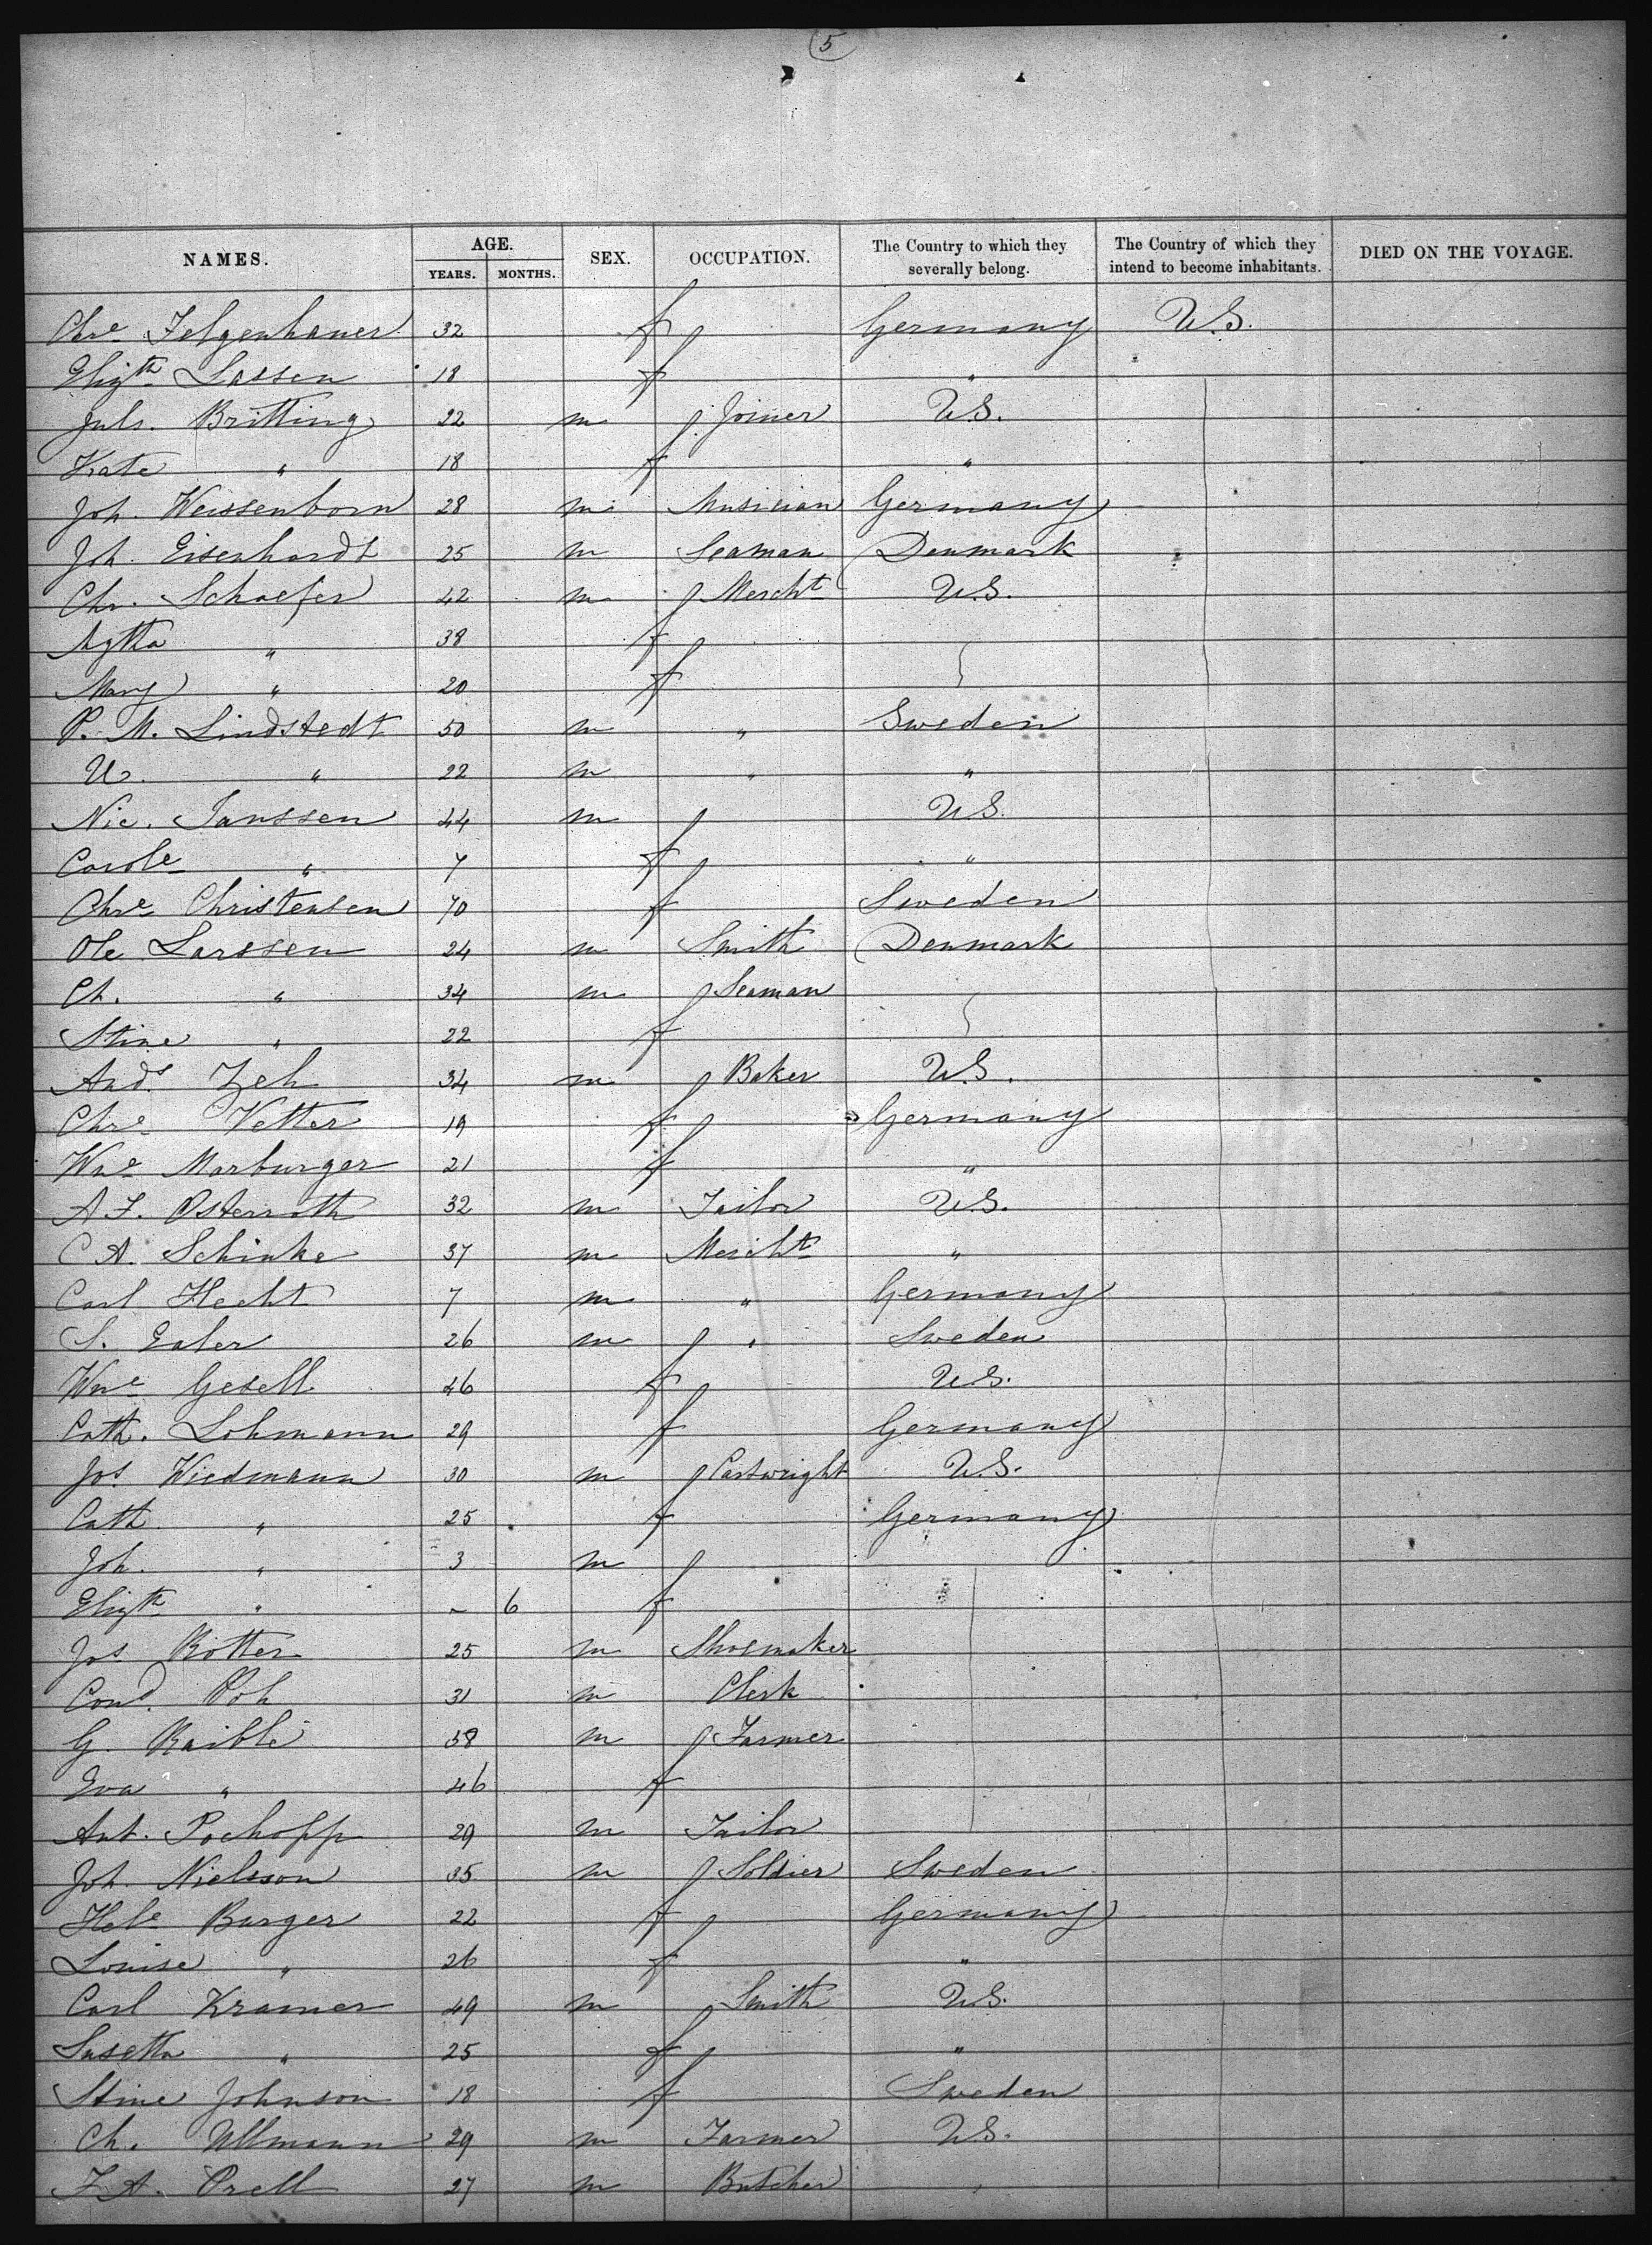 5
NAMES. AGE. YEARS. MONTHS. SEX. OCCUPATION. The Country to which they severally belong. The Country of which they intend to become inhabitants. DIED ON THE VOYAGE.
Chre Felgenhauer 32 f Germany U.S.
Elizth Lassen 18 f "
Juls. Britting 22 m Joiner U.S.
Kate " 18 f "
Joh. Weissenborn 28 m Musician Germany
Joh. Eisenhardt 25 m Seaman Denmark
Chr. Schaefer 42 m Mercht U.S.
Agtha " 38 f
Mary " 20 f
P. M. Lindstedt 50 m " Sweden
U. " 22 m " "
Nic. Janssen 44 m U.S.
Carole " 7 f "
Chre Christensen 70 f Sweden
Ole Larssen 24 m Smith Denmark
Ch. " 34 m Seaman
Stine " 22 f
Ands Zeh 34 m Baker U.S.
Chre Vetter 19 f Germany
Wne Marburger 21 f "
A F. Osterroth 32 m Tailor U.S.
C A. Schinke 37 m Mercht "
Carl Hecht 7 m " Germany
S. Ealer 26 m " Sweden
Wne Gesell 46 f U.S.
Cath. Lohmann 29 f Germany
Jos Wiedmann 30 m Cartwright U.S.
Cath " 25 f Germany
Joh. " 3 m
Elizth " - 6 f
Jos Rotter 25 m Shoemaker
Cond. Poh 31 m Clerk
G. Raible 58 m Farmer
Eva " 46 f
Ant. Pochopp 29 m Tailor
Joh. Nielsson 35 m Soldier Sweden
Hele Burger 22 f Germany
Louise " 26 f "
Carl Kramer 49 m Smith U.S.
Susetta " 25 f "
Stine Johnson 18 f Sweden
Ch. Ullmann 29 m Farmer U.S.
F. A. Prell 27 m Butcher "